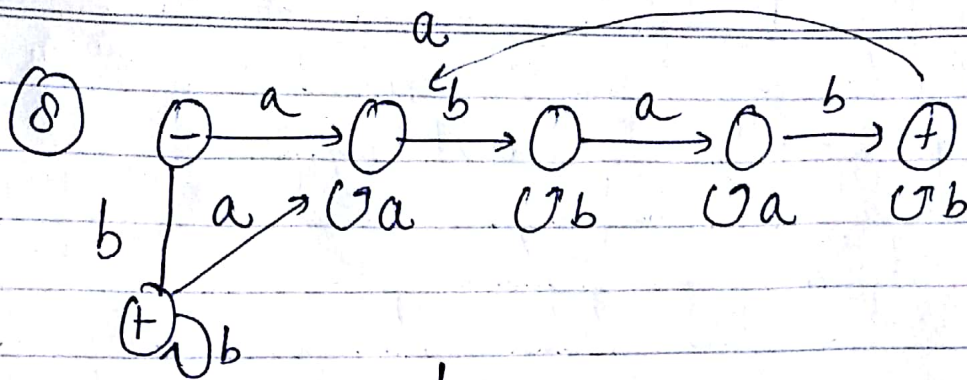 a
8 - a b a b +
b a a b a b
+ b